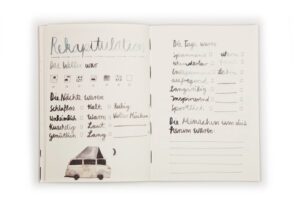 Rekapitulation
Das Wetter war
Die Nächte waren
Schlaflos Kalt Ruhig
Unheimlich Warm Voller Mücken
Kuschelig Laut
Gemütlich Lang
Die Tage waren
Spannend
Wunderbar
Entspannend
Aufregend
Langweilig
Inspirierend
Sportlich
Die Menschen um uns
herum waren